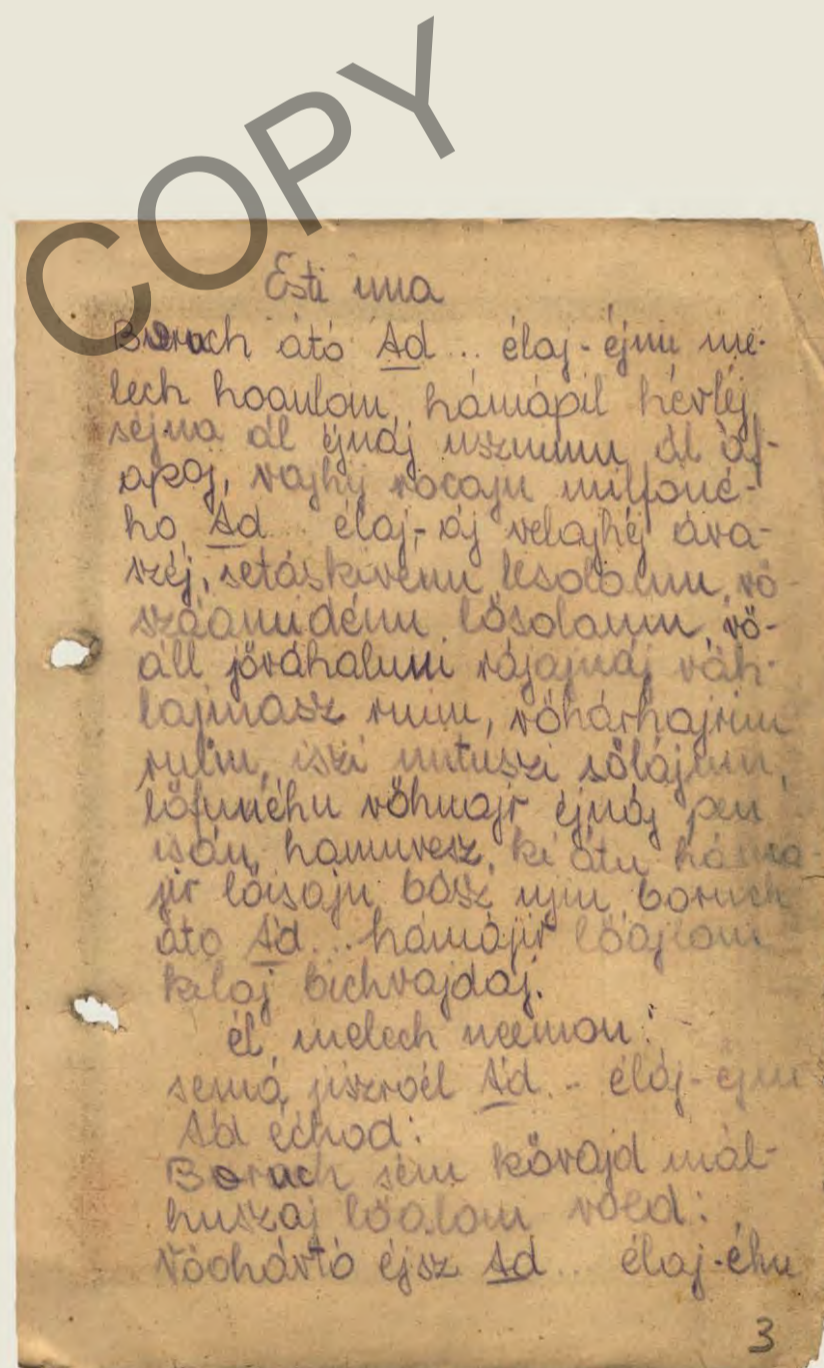 COPY
Esti ima
Boruch átó Ád... élaj-éjnu me-
lech hoaulom, hámápil hevléj
séjna ál éjnáj usznumu ál áf-
apáj, vajhij rocaju milfoné-
ho Ád... élaj-áj velajhéj ává-
széj, setáskivénu lesolaum, vö-
száamidénu lösolaum, vö-
áll jöváhaluni rájajnáj váh-
lajmasz ruim, vöhárhajrim
ruim, iszi mituszi sölájum,
löfunéhu vöhuajr éjnáj pen
isán, hamuvesz, ki átu háma-
jir löisajn, bász ujin boruch
áto Ád... hámájir löájlom
kulaj bichvajdaj.
él, melech neemon:
semá, jiszroél Ád... éláj-éjnu
Ád échod:
Boruch sém kövajd mál-
huszaj löolom voed:
Vöohávtó éjsz Ád... élaj-éhu
3